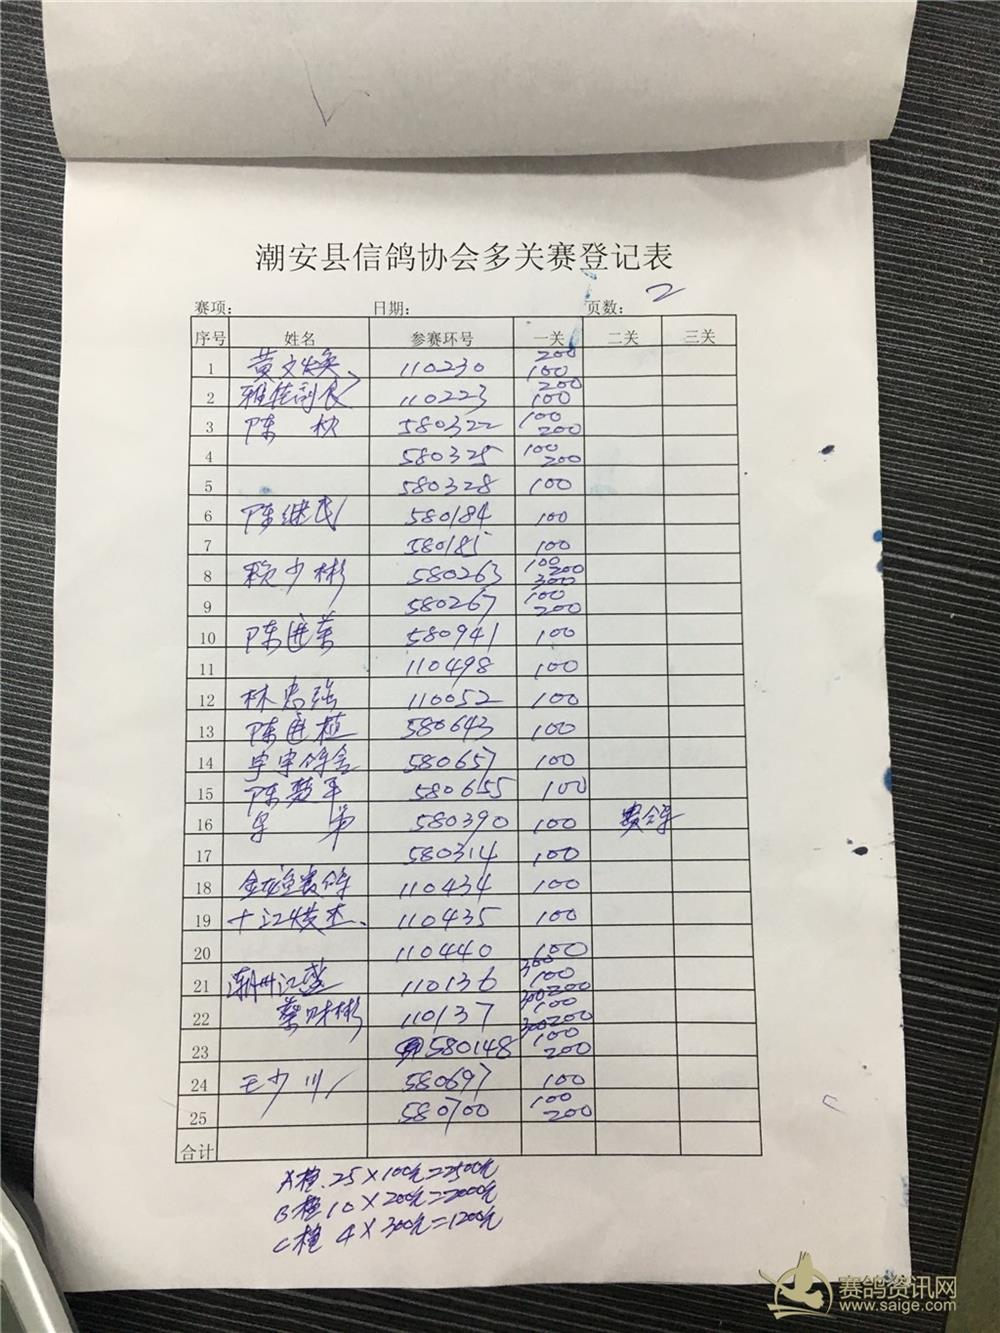 潮安县信鸽协会多关赛登记表
赛项: 日期: 页数: 2
序号 姓名 参赛环号 一关 二关 三关
1 黄文焕 110230 200 100
2 110223 200 100
3 陈 580322 100 200
4 580325 100 200
5 580328 100
6 陈继民 580184 100
7 580185 100
8 赖少彬 580263 100 200 300
9 580267 100 200
10 陈进荣 580941 100
11 110498 100
12 林忠强 110052 100
13 陈进植 580643 100
14 宇宇鸽舍 580657 100
15 陈楚平 580655 100
16 580390 100
17 580314 100
18 110434 100
19 110435 100
20 110440 100
21 潮州江盛 110136 300 100 200
22 蔡财彬 110137 300 100 200
23 580148 300 100 200
24 王少川 580697 100
25 580700 100 200
合计
A档.25×100元=2500元
B档10×200元=2000元
C档 4×300元=1200元
赛鸽资讯网
www.saige.com